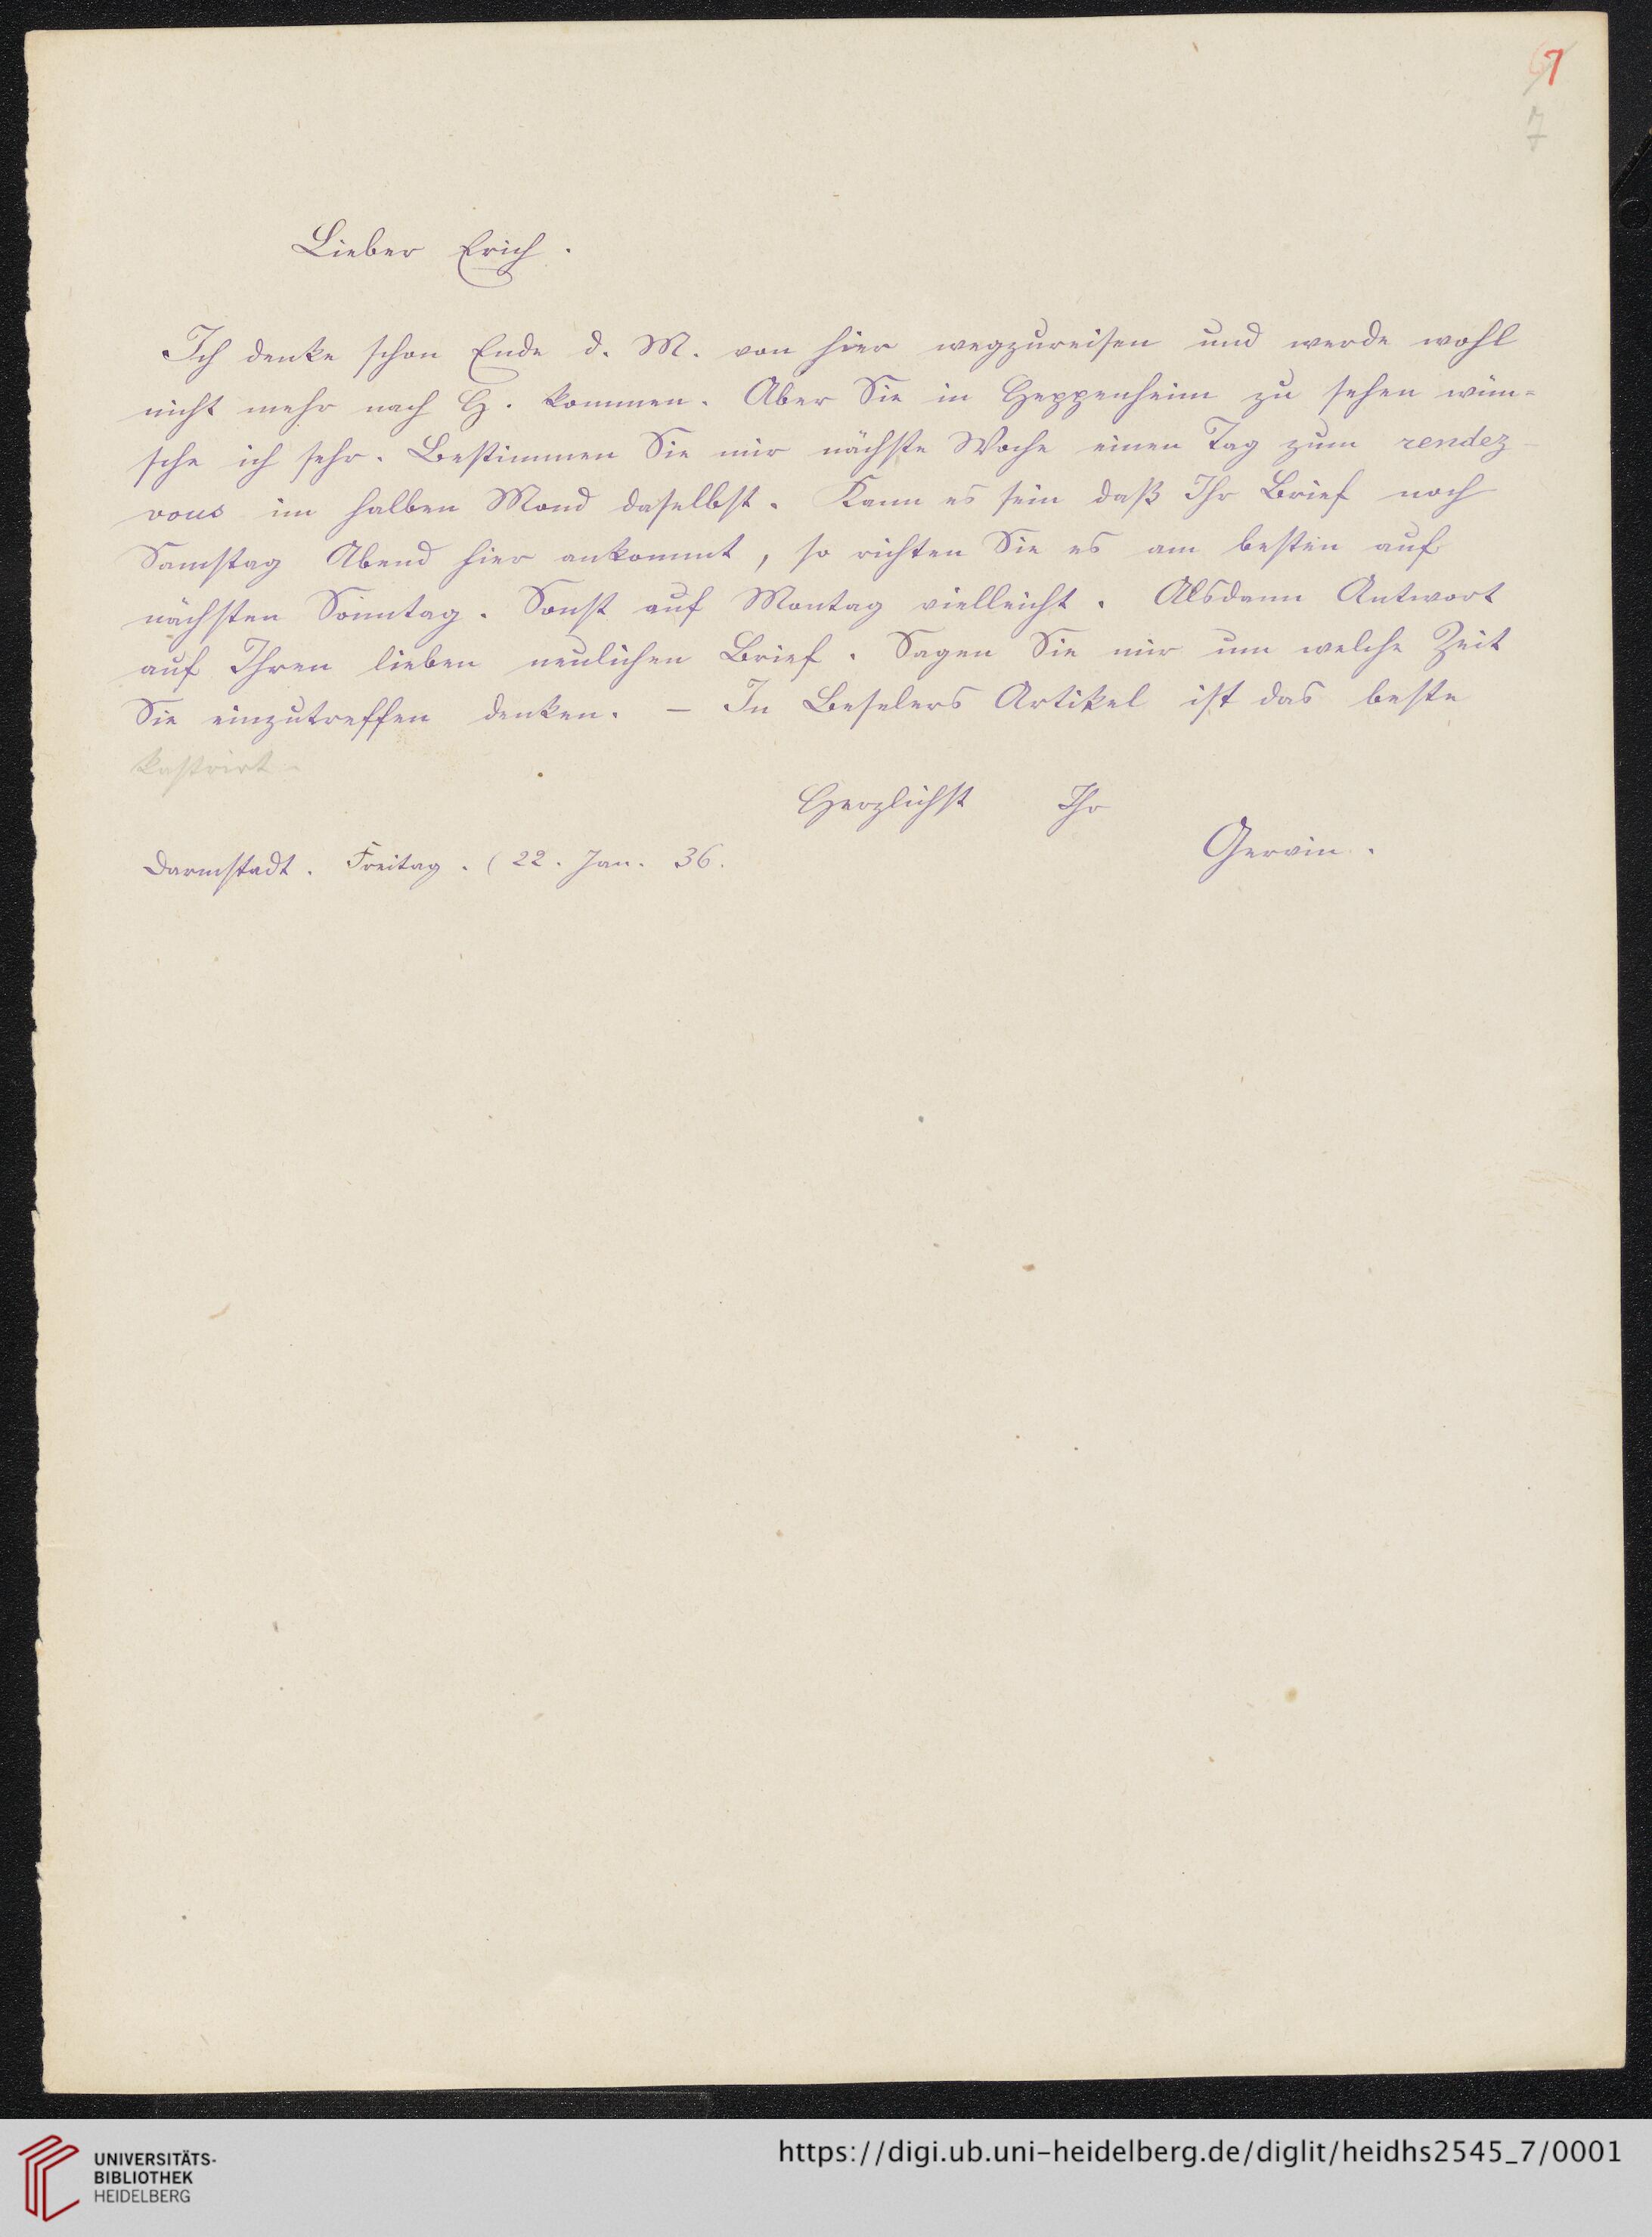 67
7
Lieber Erich.
Ich denke schon Ende d. M. von hier wegzureisen und werde wohl
nicht mehr nach H. kommen. Aber Sie in Heppenheim zu sehen wün=
sche ich sehr. Bestimmen Sie mir nächste Woche einen Tag zum rendez-
vous im halben Mond daselbst. Kann es sein daß Ihr Brief noch
Samstag Abend hier ankommt, so richten Sie es am besten auf
nächsten Sonntag. Sonst auf Montag vielleicht. Alsdann Antwort
auf Ihren lieben neulichen Brief. Sagen Sie mir um welche Zeit
Sie einzutreffen denken. – In Beselers Artikel ist das beste
kastrirt.
Herzlichst Ihr
Gervin.
Darmstadt. Freitag. (22. Jan. 36.
UNIVERSITÄTS-
BIBLIOTHEK
HEIDELBERG
https://digi.ub.uni-heidelberg.de/diglit/heidhs2545_7/0001